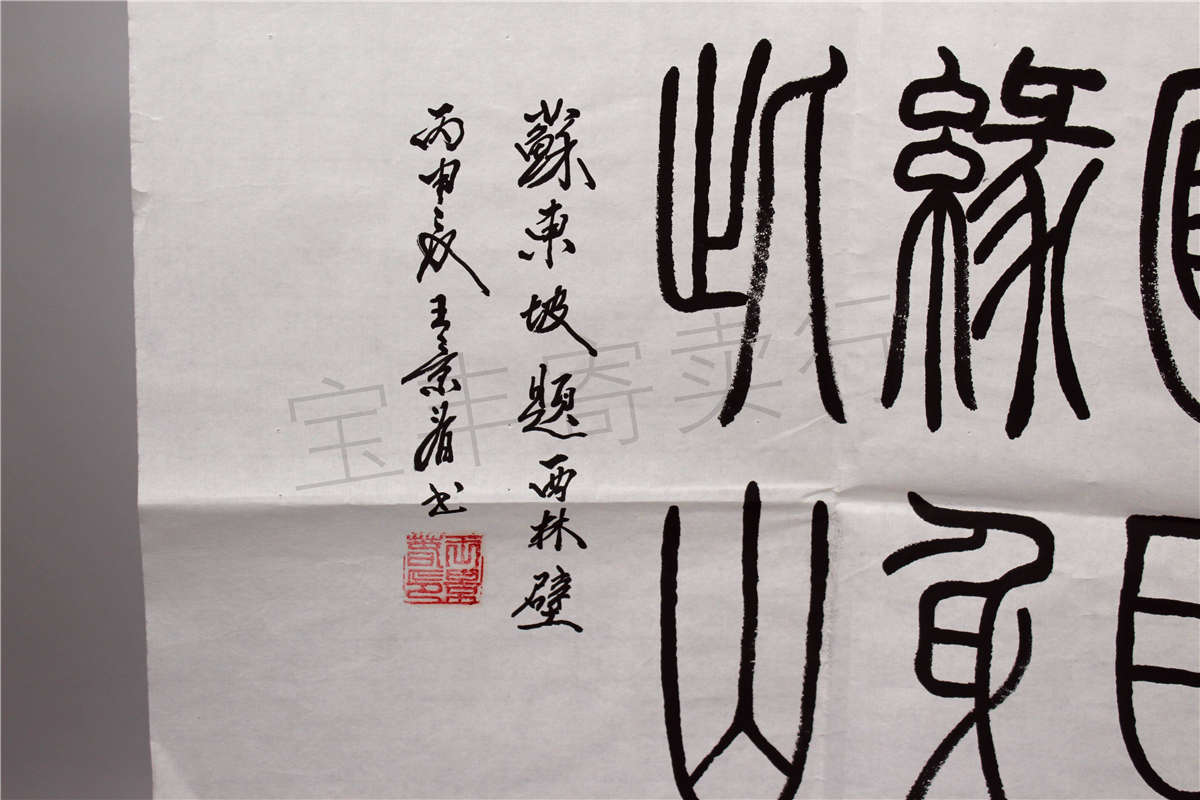 目
緣身
此山
蘇東坡題西林壁
丙申歲王景書
宝丰寄卖行